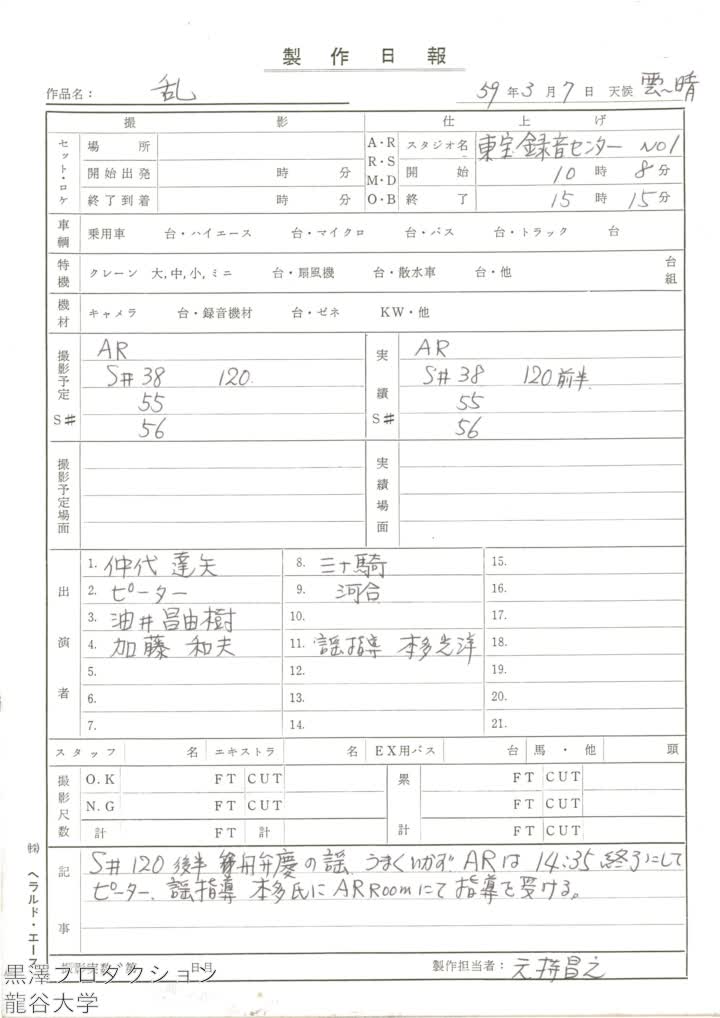 製作日報
作品名： 乱 59年3月7日 天候 雲〜晴
撮影 仕上げ
セット・ロケ 場所 A・R R・S M・D O・B スタジオ名 東宝録音センター NO1
開始出発 時 分 開始 10時8分
終了到着 時 分 終了 15時15分
車輌 乗用車 台・ハイエース 台・マイクロ 台・バス 台・トラック 台
特機 クレーン 大,中,小,ミニ 台・扇風機 台・散水車 台・他 台組
機材 キャメラ 台・録音機材 台・ゼネ KW・他
撮影予定 S# AR 実績 S# AR
S#38 120. S#38 120前半.
55 55
56 56
撮影予定場面 実績場面
出演者
1. 仲代達矢 8. 三十騎 15.
2. ピーター 9. 河合 16.
3. 油井昌由樹 10. 17.
4. 加藤和夫 11. 謡指導 本多光洋 18.
5. 12. 19.
6. 13. 20.
7. 14. 21.
スタッフ 名 エキストラ 名 EX用バス 台 馬・他 頭
撮影尺数 O.K FT CUT 累計 FT CUT
N.G FT CUT FT CUT
計 FT 計 FT CUT
記事 S#120後半 舟弁慶の謡、うまくいかず、ARは14:35終了にして
ピーター、謡指導 本多氏にAR Roomにて指導を受ける。
撮影実数 第 日目 製作担当者： 元持昌之
㈱ヘラルド・エース
黒澤プロダクション
龍谷大学